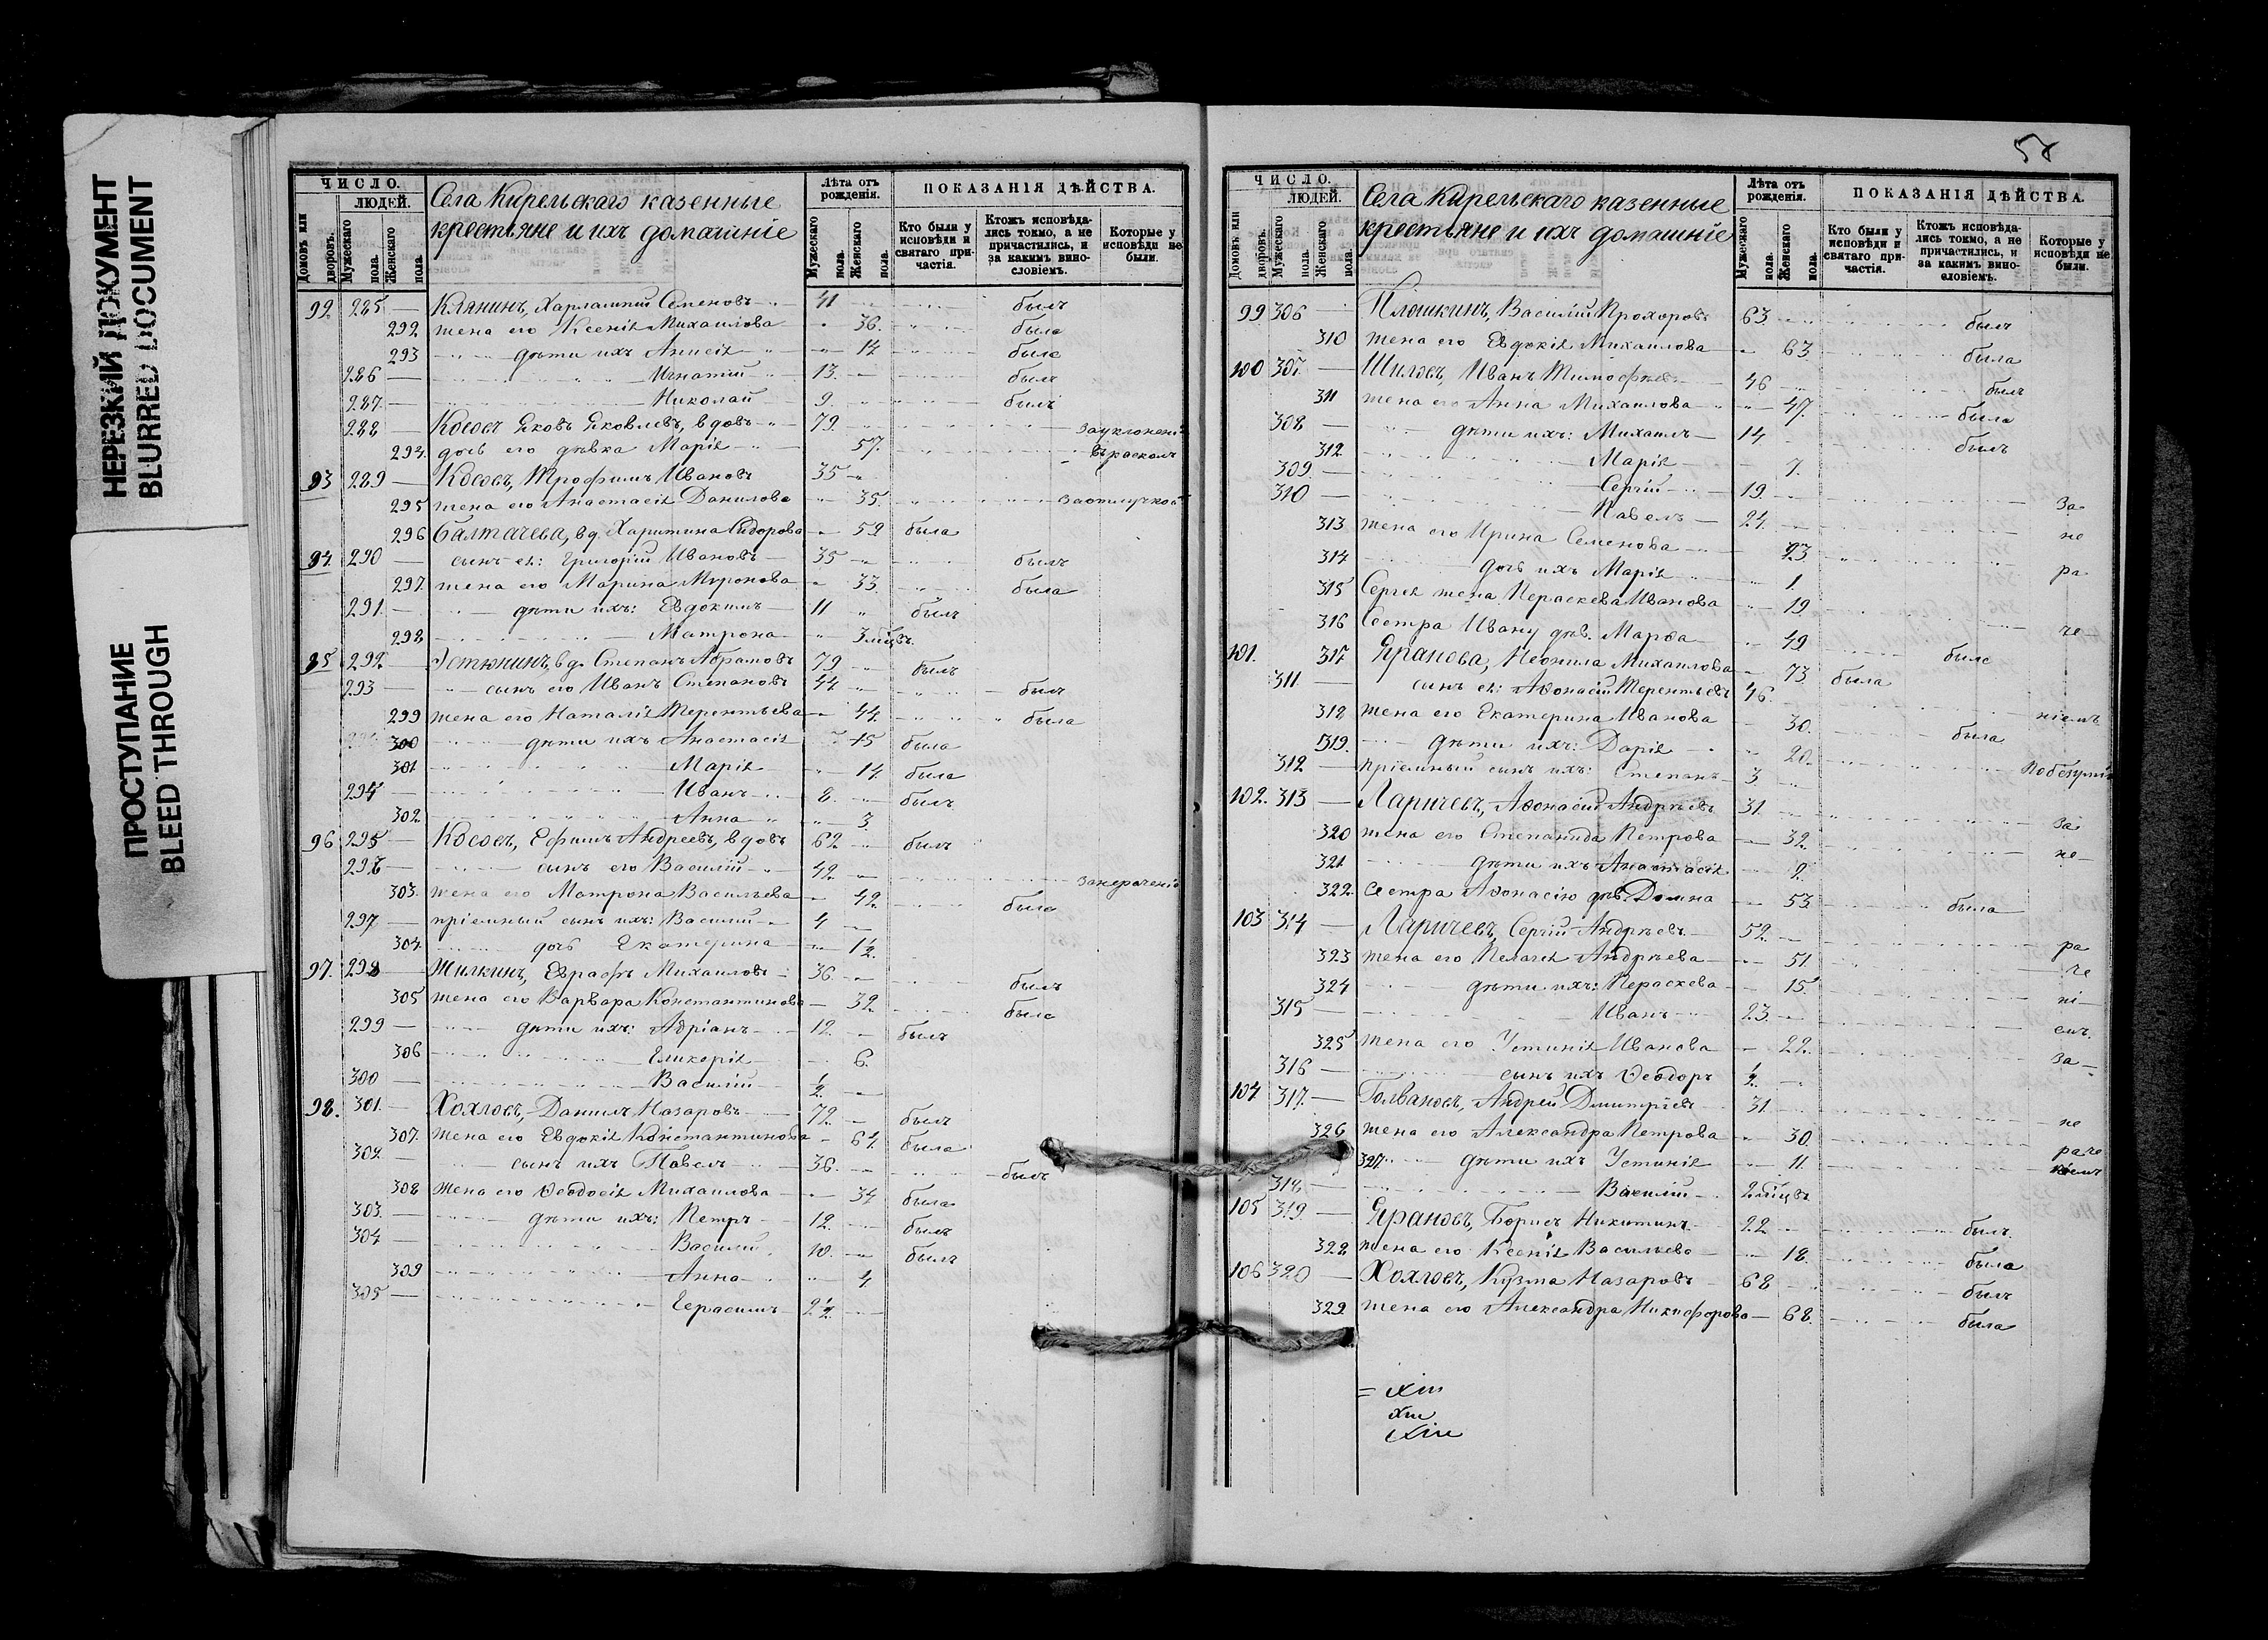 НЕРЕЗКИЙ ДОКУМЕНТ
BLURRED DOCUMENT
ПРОСТУПАНИЕ
BLEED THROUGH
ЧИСЛО.
ЛЮДЕЙ.
Домовъ или дворовъ.
Мужескаго пола.
Женскаго пола.
Села Кирельскаго казенные
крестьяне и ихъ домашніе
Лѣта отъ рожденія.
Мужескаго пола.
Женскаго пола.
ПОКАЗАНІЯ ДѢЙСТВА.
Кто были у исповѣди и святаго причастія.
Ктожъ исповѣдались токмо, а не причастились, и за какимъ винословіемъ.
Которые у исповѣди не были.
92 285 Клянинъ, Харлампий Семеновъ 41 былъ
292 жена его Ксенія Михаилова 36. была
293 дѣти ихъ Анисія 14 была
286 Игнатій 13. былъ
287. Николай 9. былъ
288 Косовъ Яковъ Яковлевъ, вдовъ 79. за уклоненіе
294. дочь его дѣвка Марія 57. въ расколъ
93 289 Косовъ, Трофимъ Ивановъ 35
295 жена его Анастасія Данилова 35. за отлучкой
296 Салтачева, вд. Харитина Сидорова 59 была
94. 290 сынъ ея: Григорій Ивановъ 35 былъ
297. жена его Марина Миронова 33. была
291. дѣти ихъ: Евдокимъ 11 былъ
298 Матрона 3 мѣсцъ.
95 292 Устюнинъ, вд. Степанъ Абрамовъ 79 былъ
293 сынъ его Иванъ Степановъ 44 былъ
299 жена его Наталія Терентьева 44. была
300 дѣти ихъ Анастасія 15 была
301 Марія 14 была
294 Иванъ 8. былъ
302 Анна 3
96 295 Косовъ, Ефимъ Андреевъ, вдовъ 62 былъ
296 сынъ его Василій 42. за нераченіе
303. жена его Матрона Васильева 42. была
297 пріемный сынъ ихъ: Василій 4
304. дочь Екатерина 1½
97. 298 Жилкинъ, Евграфъ Михаиловъ 36. былъ
305 жена его Варвара Константинова 32. была
299 дѣти ихъ: Адріанъ 12. былъ
306 Гликерія 6.
300 Василій ½
98. 301. Хохловъ, Данилъ Назаровъ 72. былъ
307. жена его Евдокія Константинова 64. была
302 сынъ ихъ Павелъ 36. былъ
308 жена его Ѳеодосія Михаилова 34 была
303. дѣти ихъ: Петръ 12. былъ
304 Василій 10. былъ
309 Анна 4
305 Герасимъ 2½
58
ЧИСЛО.
ЛЮДЕЙ.
Домовъ или дворовъ.
Мужескаго пола.
Женскаго пола.
Села Кирельскаго казенные
крестьяне и ихъ домашніе
Лѣта отъ рожденія.
Мужескаго пола.
Женскаго пола.
ПОКАЗАНІЯ ДѢЙСТВА.
Кто были у исповѣди и святаго причастія.
Ктожъ исповѣдались токмо, а не причастились, и за какимъ винословіемъ.
Которые у исповѣди не были.
99 306 Плошкинъ, Василій Прохоровъ 63. былъ
310 жена его Евдокія Михаилова 63 была
100 307. Шиловъ, Иванъ Тимофѣевъ 46 былъ
311 жена его Анна Михаилова 47. была
308 дѣти ихъ: Михаилъ 14 былъ
312 Марія 7.
309. Сергій 19. за
310 Павелъ 24. не
313 жена его Ирина Семенова 23
314 дочь ихъ Марія 1. ра
315 Сергія жена Параскева Иванова 19.
316 Сестра Ивану дѣв. Марѳа 49 была че
101. 317 Яранова, Неонила Михаилова 73 была
311. сынъ ея: Аѳонасій Терентьевъ 46. ніемъ
318 жена его Екатерина Иванова 30. была
319. дѣти ихъ: Дарія 20. по безумію
312 пріемный сынъ ихъ: Степанъ 3
102. 313 Ларичевъ, Аѳонасій Андрѣевъ 31. за
320 жена его Степанида Петрова 32. не
321 дѣти ихъ Анастасія 2.
322. сестра Аѳонасію дѣв. Домна 53. была
103 314 Ларичевъ, Сергій Андрѣевъ 52. ра
323 жена его Пелагія Андрѣева 51. че
324 дѣти ихъ: Параскева 15. ні
315 Иванъ 23. емъ
325 жена его Устинія Иванова 22. за
316 сынъ ихъ Ѳеодоръ ½
104 317. Голвановъ, Андрей Дмитріевъ 31. не
326 жена его Александра Петрова 30. раче
327 дѣти ихъ Устинія 11. ніемъ
318. Василій 2 мѣсцъ
105 319. Ярановъ, Борисъ Никитинъ 22 былъ
328 жена его Ксенія Васильева 18. была
106 320 Хохловъ, Кузма Назаровъ 68 былъ
329 жена его Александра Никифорова 68. была